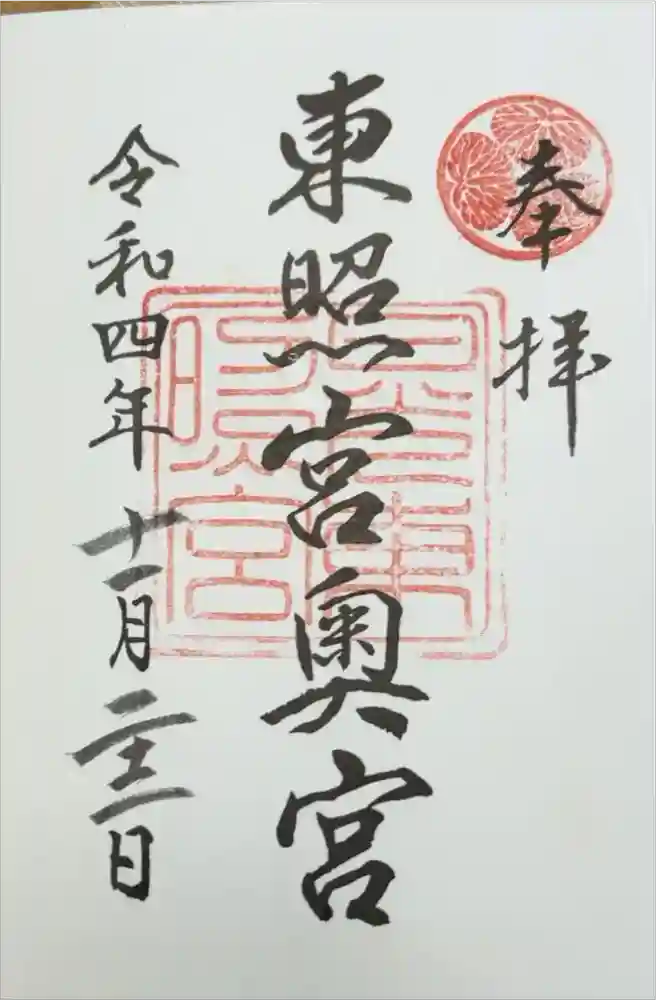 奉拝
東照宮奥宮
日光東
照宮
令和四年十一月 日